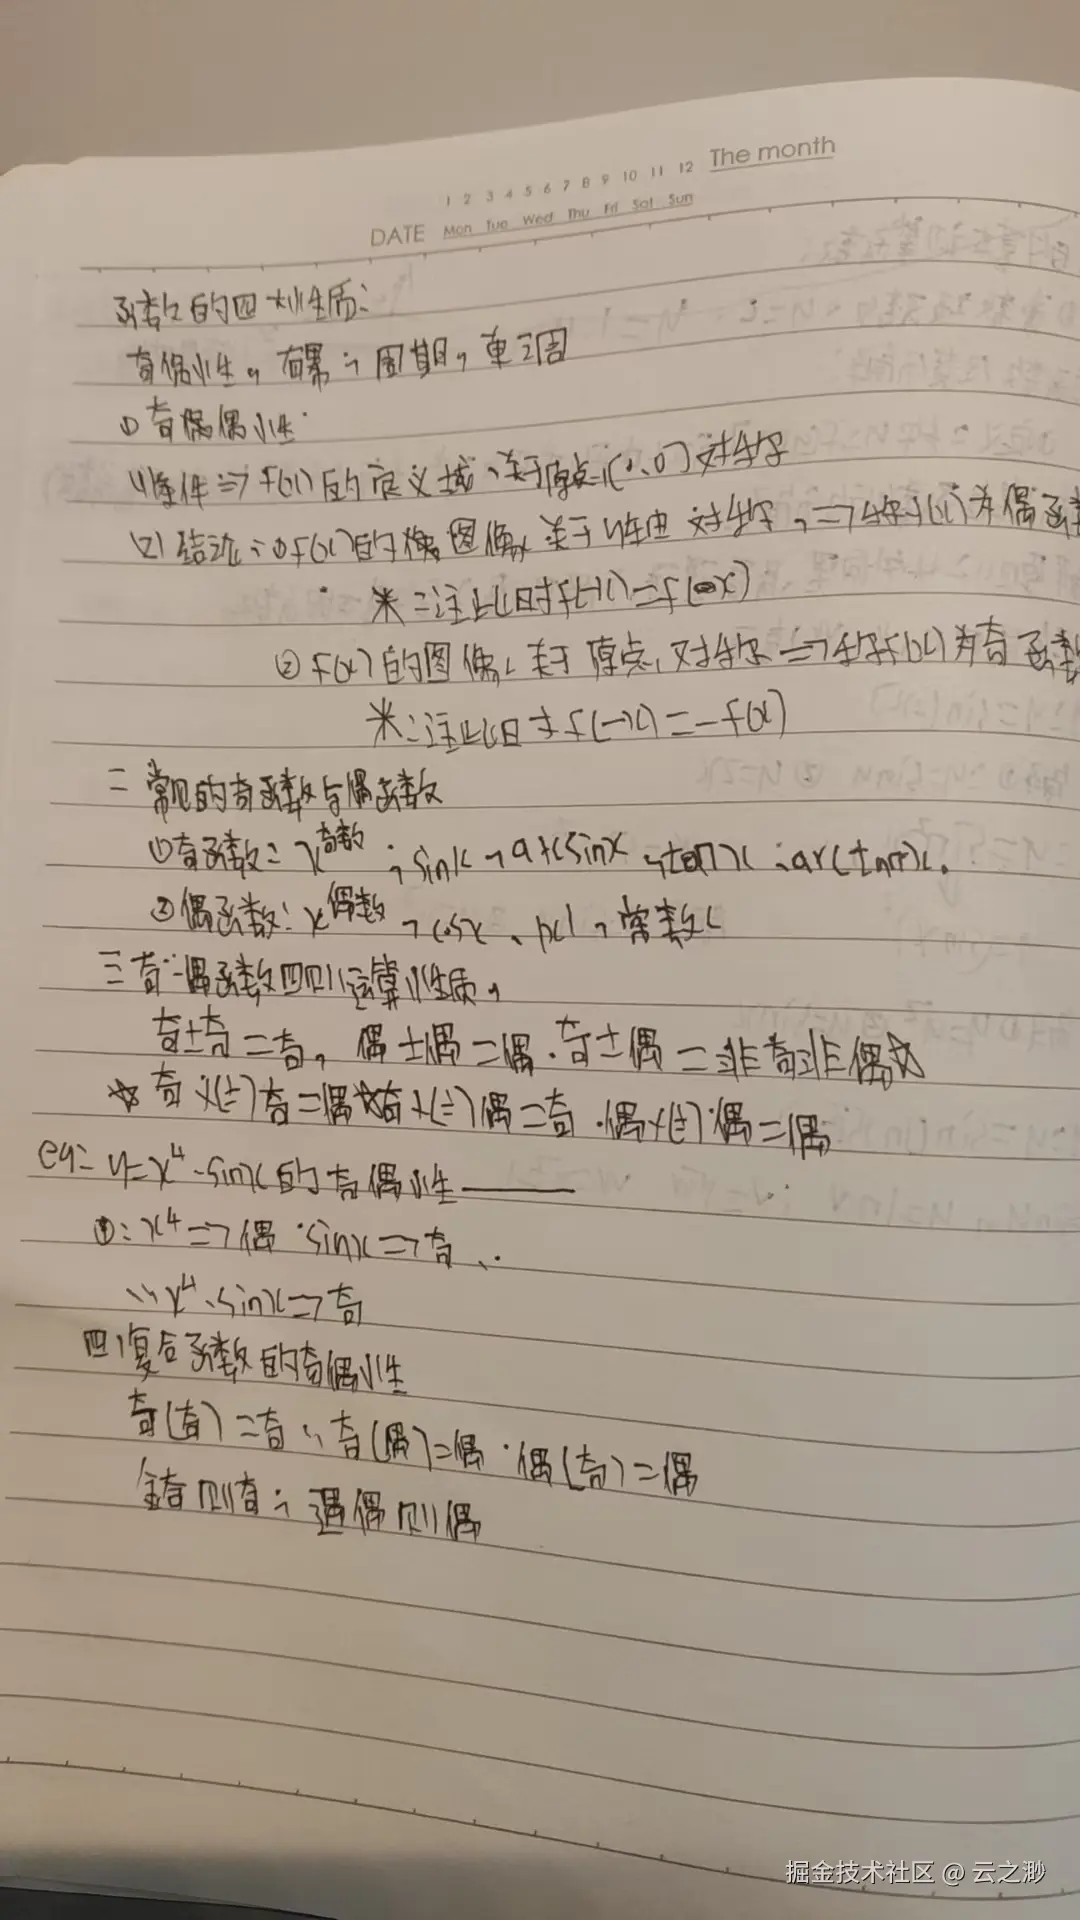 The month
1 2 3 4 5 6 7 8 9 10 11 12
DATE Mon Tue Wed Thu Fri Sat Sun
函数的四大性质:
奇偶性,有界,周期,单调
① 奇偶性
(1)条件 => f(x)的定义域,关于原点(0,0)对称
(2)结论:①f(x)的图像关于y轴 对称,=>称f(x)为偶函数
※:注此时f(-x)=f(x)
②f(x)的图像关于原点,对称=>称f(x)为奇函数
※:注此时f(-x)=-f(x)
二 常见的奇函数与偶函数
①奇函数: x^奇数,sinx,arcsinx,tanx,arctanx.
②偶函数: x^偶数,cosx、|x|,常数C
三 奇偶函数四则运算性质,
奇±奇=奇,偶±偶=偶.奇±偶=非奇非偶☆
☆奇×(÷)奇=偶☆奇×(÷)偶=奇.偶×(÷)偶=偶
eg: y=x⁴·sinx的奇偶性
①:x⁴=>偶·sinx=>奇
∴x⁴·sinx=>奇
四、复合函数的奇偶性
奇(奇)=奇,奇(偶)=偶·偶(奇)=偶
全奇则奇,遇偶则偶
掘金技术社区 @ 云之渺